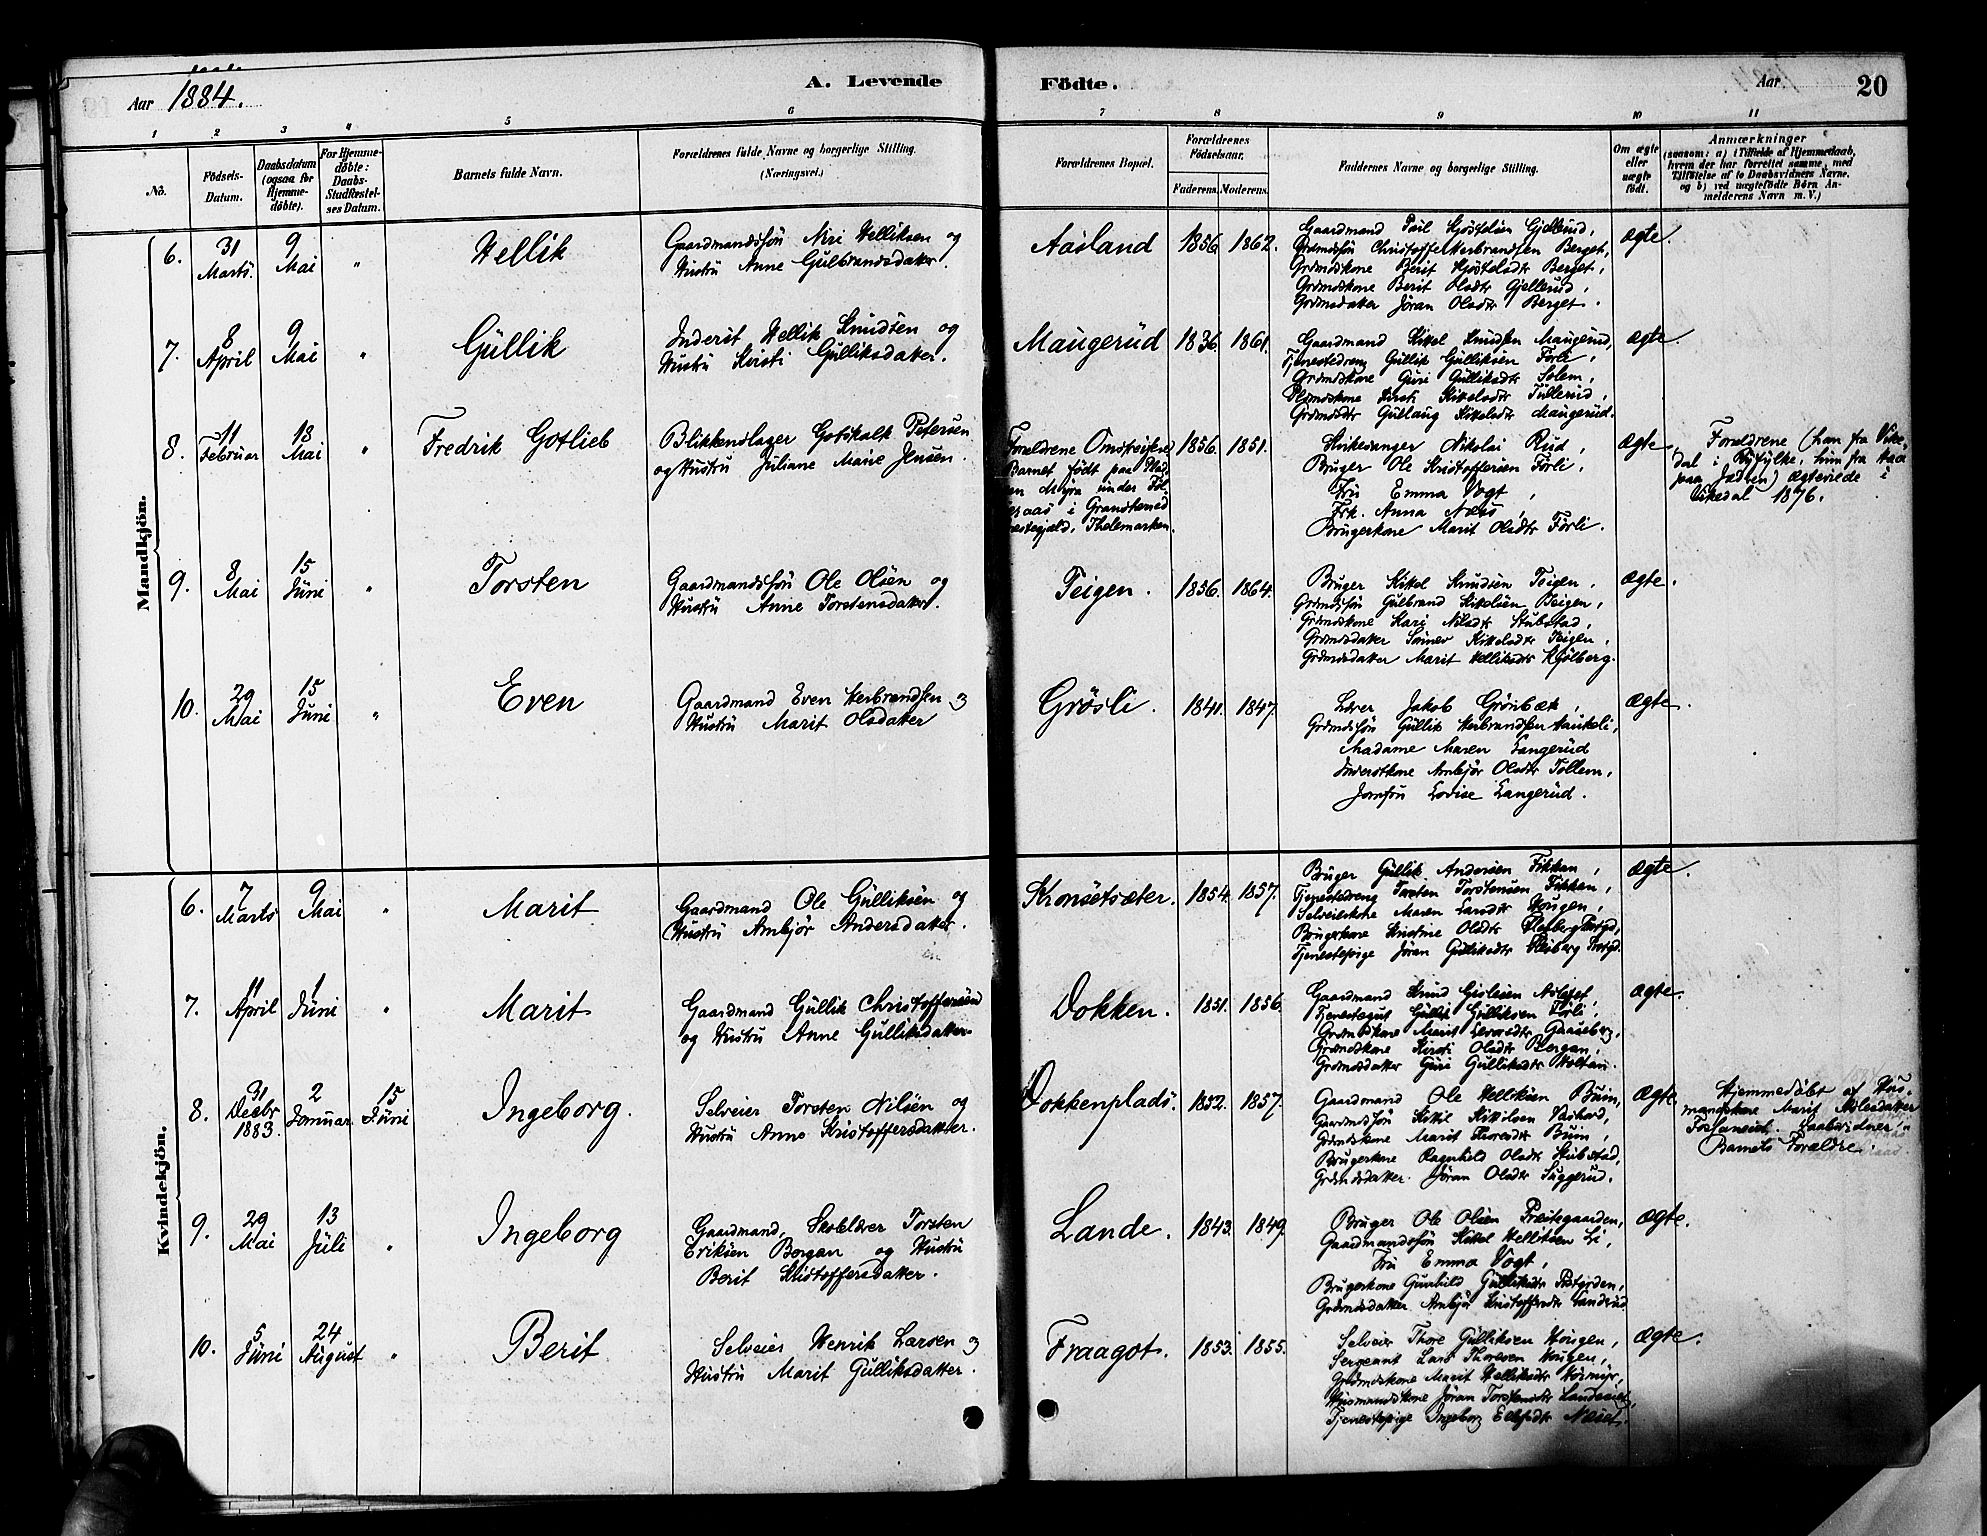 Aar 1884.
A. Levende
Födte.
Aar
20
1 2 3 4 5 6
7 8 9 10 11
No.
Födsels-Datum.
Daabsdatum (ogsaa for Hjemme-döbte).
For Hjemme-döbte: Daabs-Stadfæstel-ses Datum.
Barnets fulde Navn.
Forældrenes fulde Navne og borgerlige Stilling.
(Næringsvei.)
Forældrenes Bopæl.
Forældrenes Födselsaar.
Faderens. Moderens.
Faddernes Navne og borgerlige Stilling.
Om ægte eller uægte födt.
Anmærkninger
(saasom: a) i Tilfælde af Hjemmedaab,
hvem der har forrettet samme, med
Tilföielse af to Daabsvidners Navne,
og b) ved uægtefödte Börn An-
melderens Navn m. V.)
Mandkjön.
6. 31 Marts. 9 Mai " Hellik
Gaardmandssøn Helliksen og
Hustru Anne Gulbrandsdatter.
Aasland 1856. 1862.
Gaardmand Gjellerud,
Grdmdsøn Christoffer Herbrandsen Berget,
Grdmdskone Berit Berget,
Grdmdskone Berit Olsdtr Gjellerud,
Grdmdsdatter Jøran Olsdtr Berget.
ægte.
7. 8 April 9 Mai " Gullik
Inderst Hellik Knudsen og
Hustru Kirsti Gulliksdatter.
Maugerud 1836. 1861.
Gaardmand Kittel Knudsen Maugerud,
Tjenestedreng Gullik Gulliksen Førli,
Grdmdskone Guri Gulliksdtr Solem,
Kittelsdtr Tullerud,
Grdmdsdtr Gullaug Kittelsdtr Maugerud.
ægte.
8. 11 Februar 18 Mai " Fredrik Gotlieb
Blikkenslager Gotskalk Petersen
og Hustru Juliane Marie Jensen.
Forældrene Omstreifere
Barnet født paa Plad-
sen Myra under
i Gransherred
Præstegjeld, Thelemarken.
1856. 1851.
Kirkesanger Nikolai Rud,
Bruger Ole Kristoffersen Førli,
Fru Emma Vogt,
Frk. Anna Næss,
Brugerkone Marit Olsdtr Førli.
ægte
Forældrene (han fra Vike-
dal i Ryfylke, hun fra Haa
paa Jædren) ægteviede i
Vikedal 1876.
9. 8 Mai 15 Juni " Torsten
Gaardmandssøn Ole Olsen og
Hustru Anne Torstensdatter.
Teigen. 1856. 1864.
Bruger Kittel Knudsen Teigen,
Grdmdsøn Gulbrand Kittelsen Teigen,
Grdmdskone Kari Nilsdtr Stubstad,
Grdmdsdatter Kittelsdtr Teigen,
Grdmdsdatter Marit Helliksdtr Kjølberg.
ægte.
10. 29 Mai 15 Juni " Even
Gaardmand Even Herbrandsen og
Hustru Marit Olsdatter
Grøsli. 1841. 1847.
Lærer Jakob Grønbæk,
Grdmdsøn Gullik Herbrandsen Haukeli,
Madame Maren Langerud
Inderstkone Ambjør Olsdtr Tollem,
Jomfru Lovise Langerud.
ægte.
Kvindekjön.
6. 7 Marts 9 Mai " Marit
Gaardmand Ole Gulliksen og
Hustru Ambjør Andersdatter.
Kronsetsæter. 1854. 1857.
Bruger Gullik Andersen Fikkan,
Tjenestedreng Torsten Torstensen Fikkan,
Selveierkone Maren Hougen,
Brugerkone Kristine Olsdtr Flesberg Prstgd,
Tjenestepige Jøran Gulliksdtr Flesberg Prstgd.
ægte.
7. 11 April 1 Juni " Marit
Gaardmand Gullik Christoffersen
og Hustru Anne Gulliksdatter
Dokken. 1851. 1856.
Gaardmand Knud Gislesen
Tjenestegut Gullik Gulliksen Førli,
Grdmdskone Marit
Grdmdskone Kirsti Olsdtr Bergan,
Grdmdsdatter Guri Gulliksdtr
ægte.
8. 31 Decbr 1883. 2 Januar 15 Juni Ingeborg.
Selveier Torsten Nilsen og
Hustru Anne Kristoffersdatter.
Dokkenplads. 1852. 1857.
Gaardmand Ole Helliksen Bruin,
Gaardmdsøn Kittil Kittilsen
Grdmdskone Marit Thoresdtr Bruin,
Brugerkone Ragnhild Olsdtr Stubstad,
Grdmdsdatter. Jøran Olsdtr Tuggerud.
ægte.
Hjemmedøbt af Hus-
mandskone Marit Nilsdatter
Daabsvidner:
Barnets Forældre.
9. 29 Mai 13 Juli " Ingeborg
Gaardmand, Skolelærer Torsten
Eriksen Bergan og Hustru
Berit Kristoffersdatter.
Lande. 1843. 1849.
Bruger Ole Olsen Præstegaarden,
Gaardmandssøn Kittel Helliksen Li,
Fru Emma Vogt,
Brugerkone Gunhild Gulliksdtr Prstgrden,
Grdmdsdatter Ambjør Kristoffersdtr Landerud
ægte.
10. 5 Juni 24 August " Berit
Selveier Henrik Larsen og
Hustru Marit Gulliksdatter.
Fraagot. 1853. 1855.
Selveier Thore Gulliksen Hougen,
Sergeant Lars Thoresen Hougen,
Grdmdskone Marit Helliksdtr
Husmandskone Jøran Torstensdtr
Tjenestepige Ingeborg Næset.
ægte.